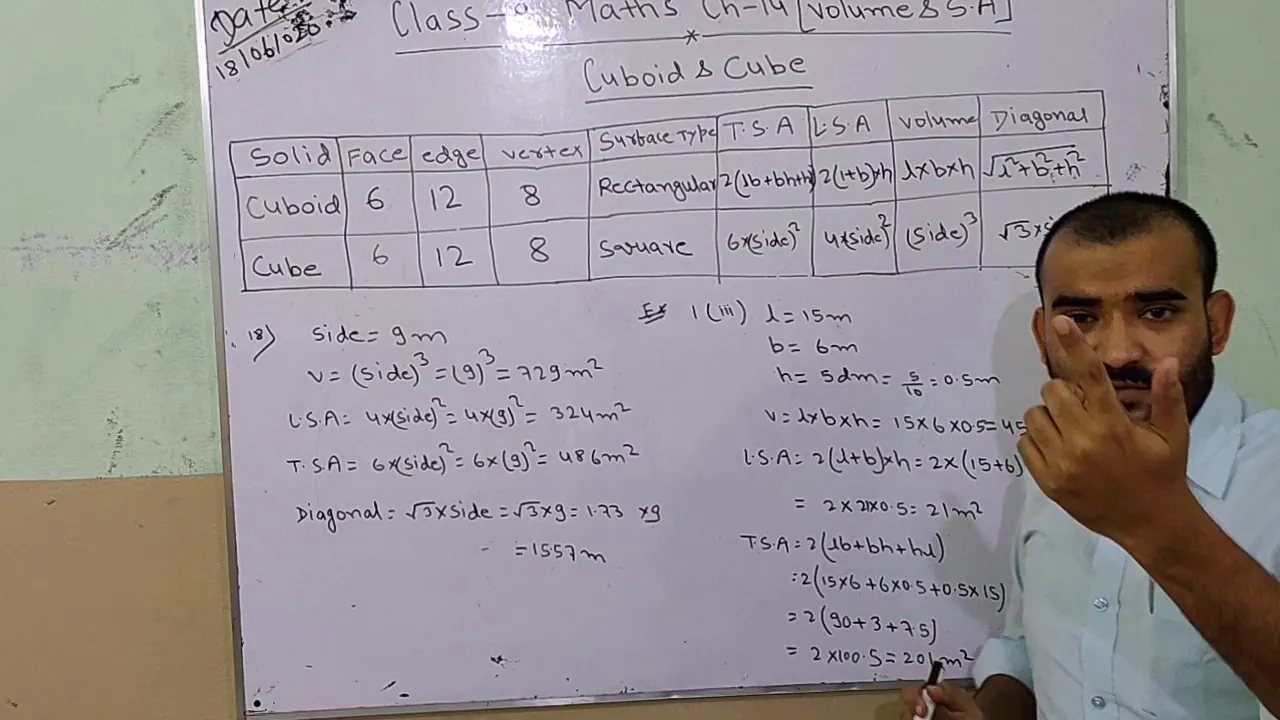 Date
18/06/020
Class-9 Maths Ch-14 [Volume & S.A]
Cuboid & Cube
Solid Face edge vertex Surface Type T.S.A L.S.A Volume Diagonal
Cuboid 6 12 8 Rectangular 2(lb+bh+h 2(l+b)×h l×b×h √l²+b²+h²
Cube 6 12 8 Saruare 6×(side)² 4×(side)² (side)³ √3×s
18) side = 9m
V = (side)³ = (9)³ = 729m²
L.S.A = 4×(side)² = 4×(9)² = 324m²
T.S.A = 6×(side)² = 6×(9)² = 486m²
Diagonal = √3×side = √3×9 = 1.73 ×9
= 15.57m
Ex 1(iii) l = 15m
b = 6m
h = 5dm = 5/10 = 0.5m
V = l×b×h = 15×6×0.5 = 45
L.S.A = 2(l+b)×h = 2×(15+6)
= 2×21×0.5 = 21m²
T.S.A = 2(lb+bh+hl)
= 2(15×6+6×0.5+0.5×15)
= 2(90+3+7.5)
= 2×100.5 = 201m²